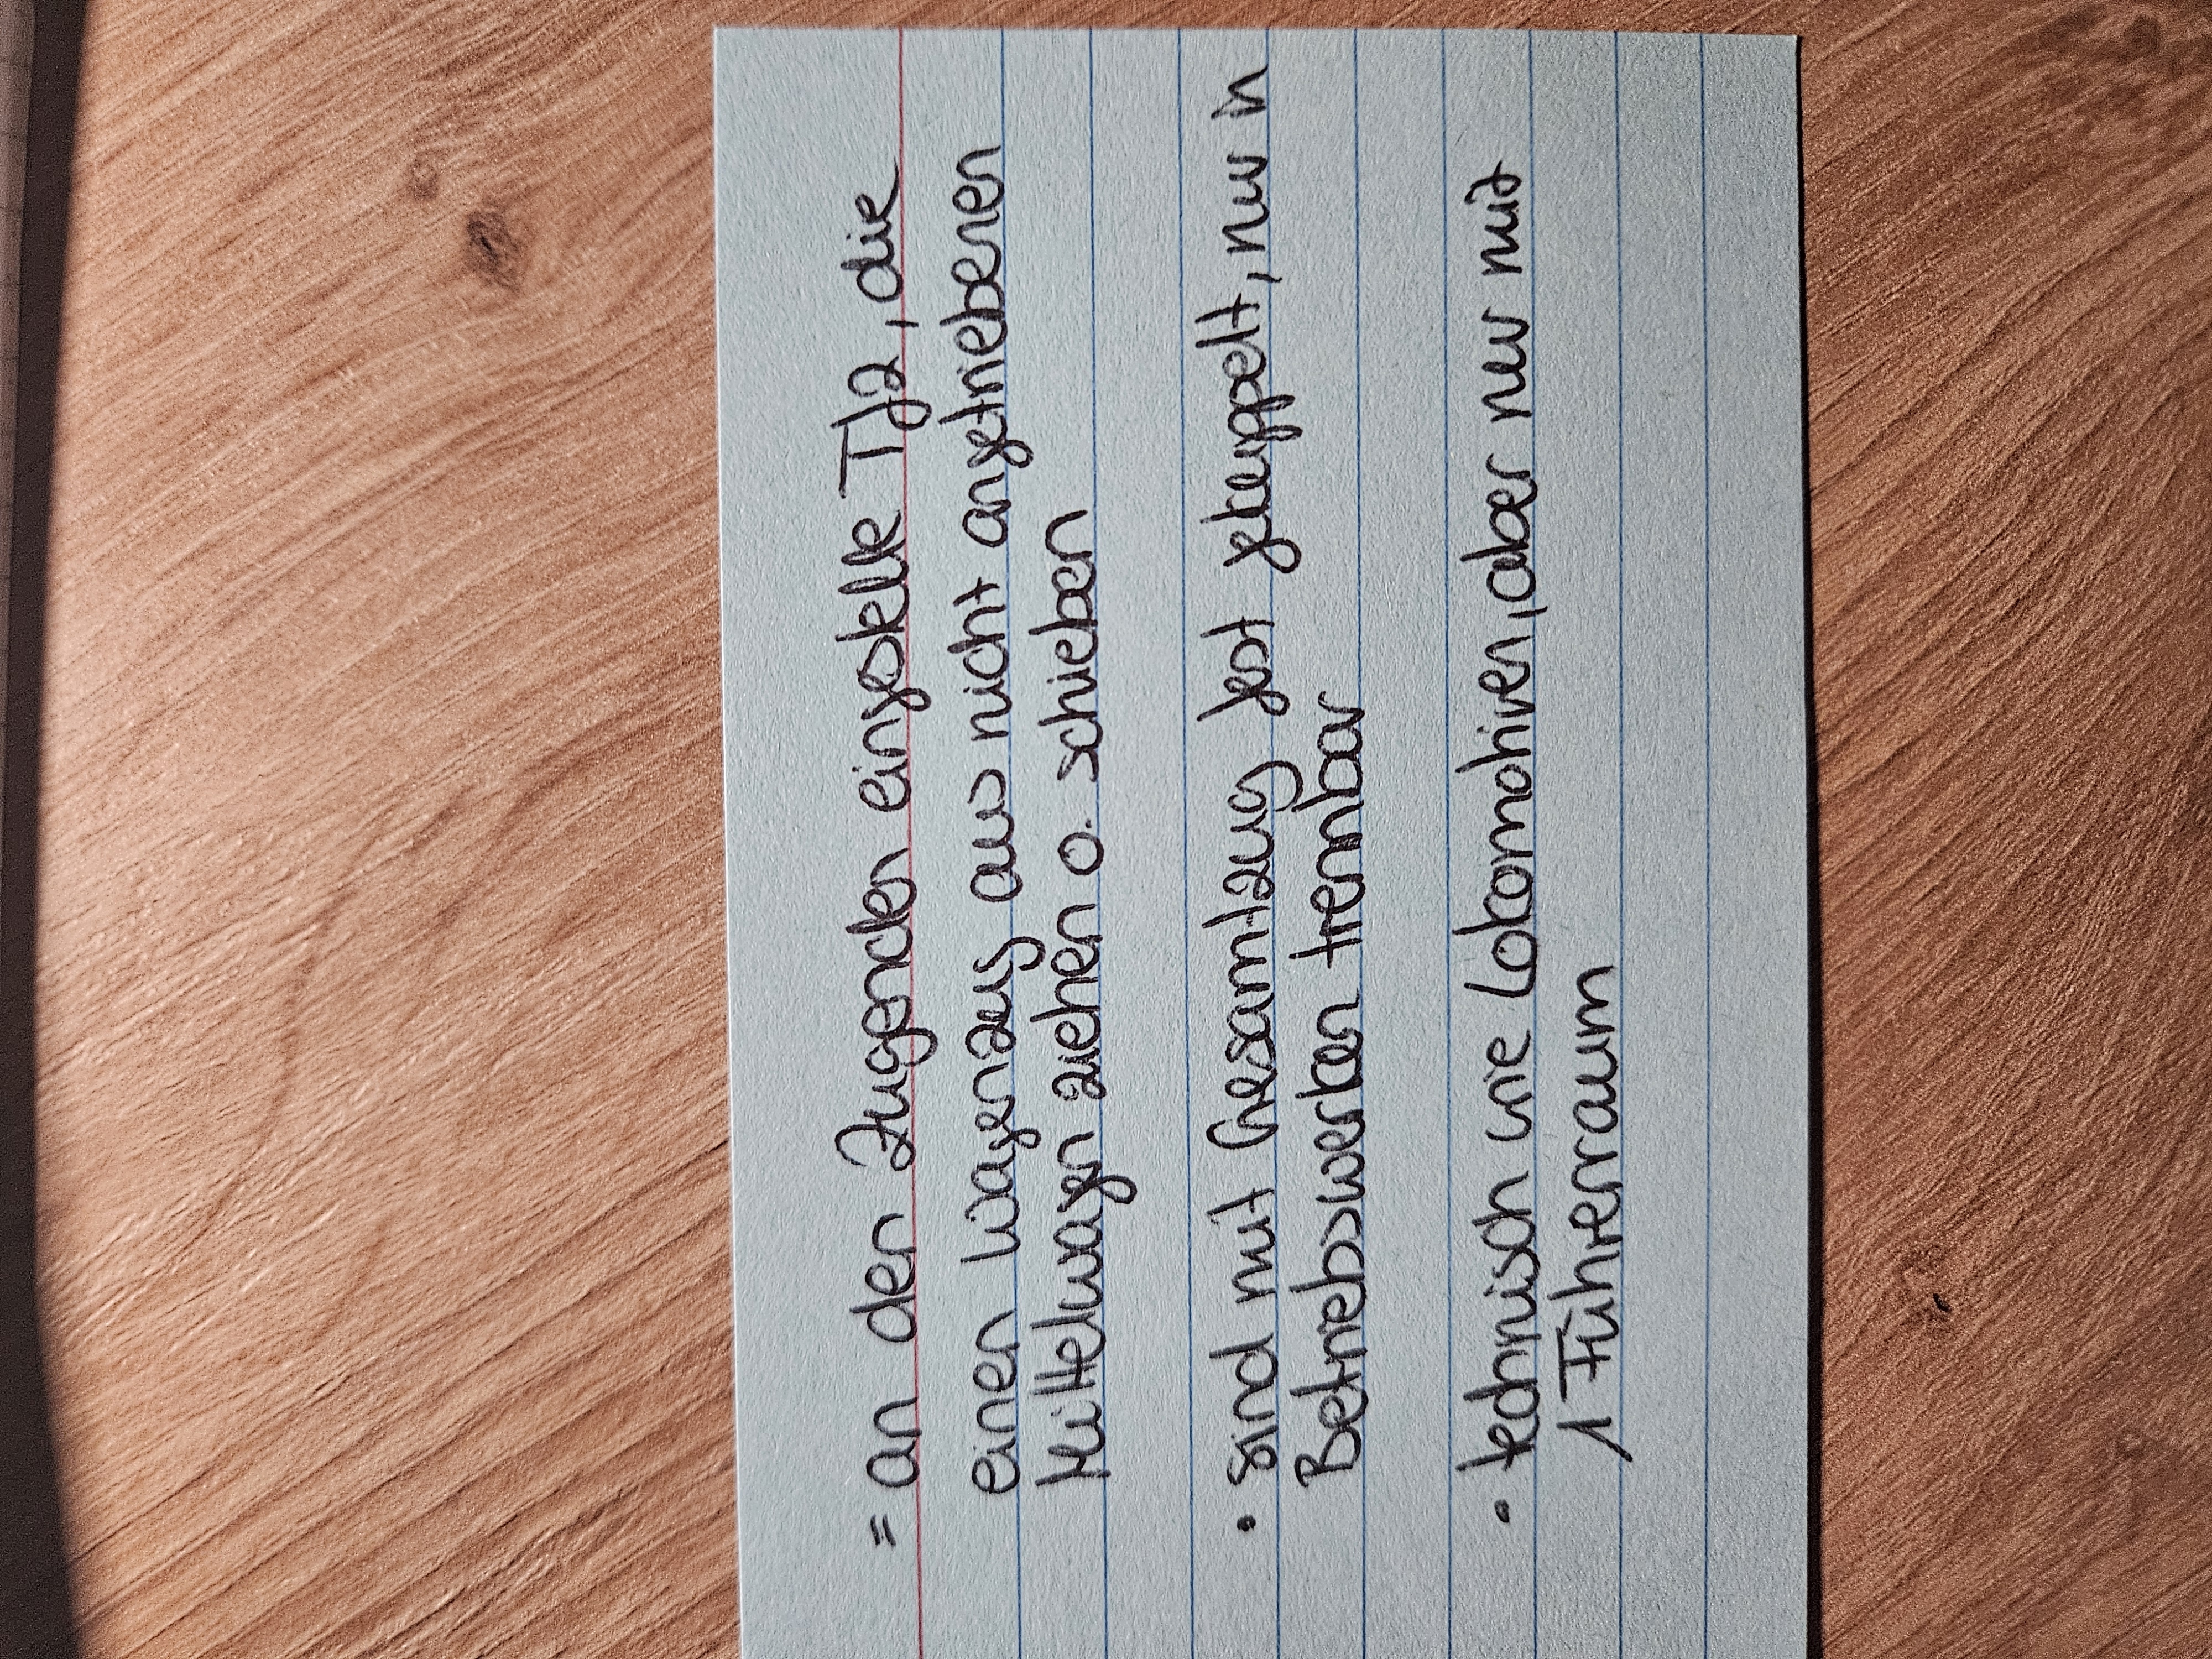 = an den Zugenden eingestellte Tfz, die
einen Wagenzug aus nicht angetriebenen
Mittelwagen ziehen o. schieben
• sind mit Gesamtzug fest gekuppelt, nur in
Betriebswerken trennbar
• technisch wie Lokomotiven, aber nur mit
1 Führerraum